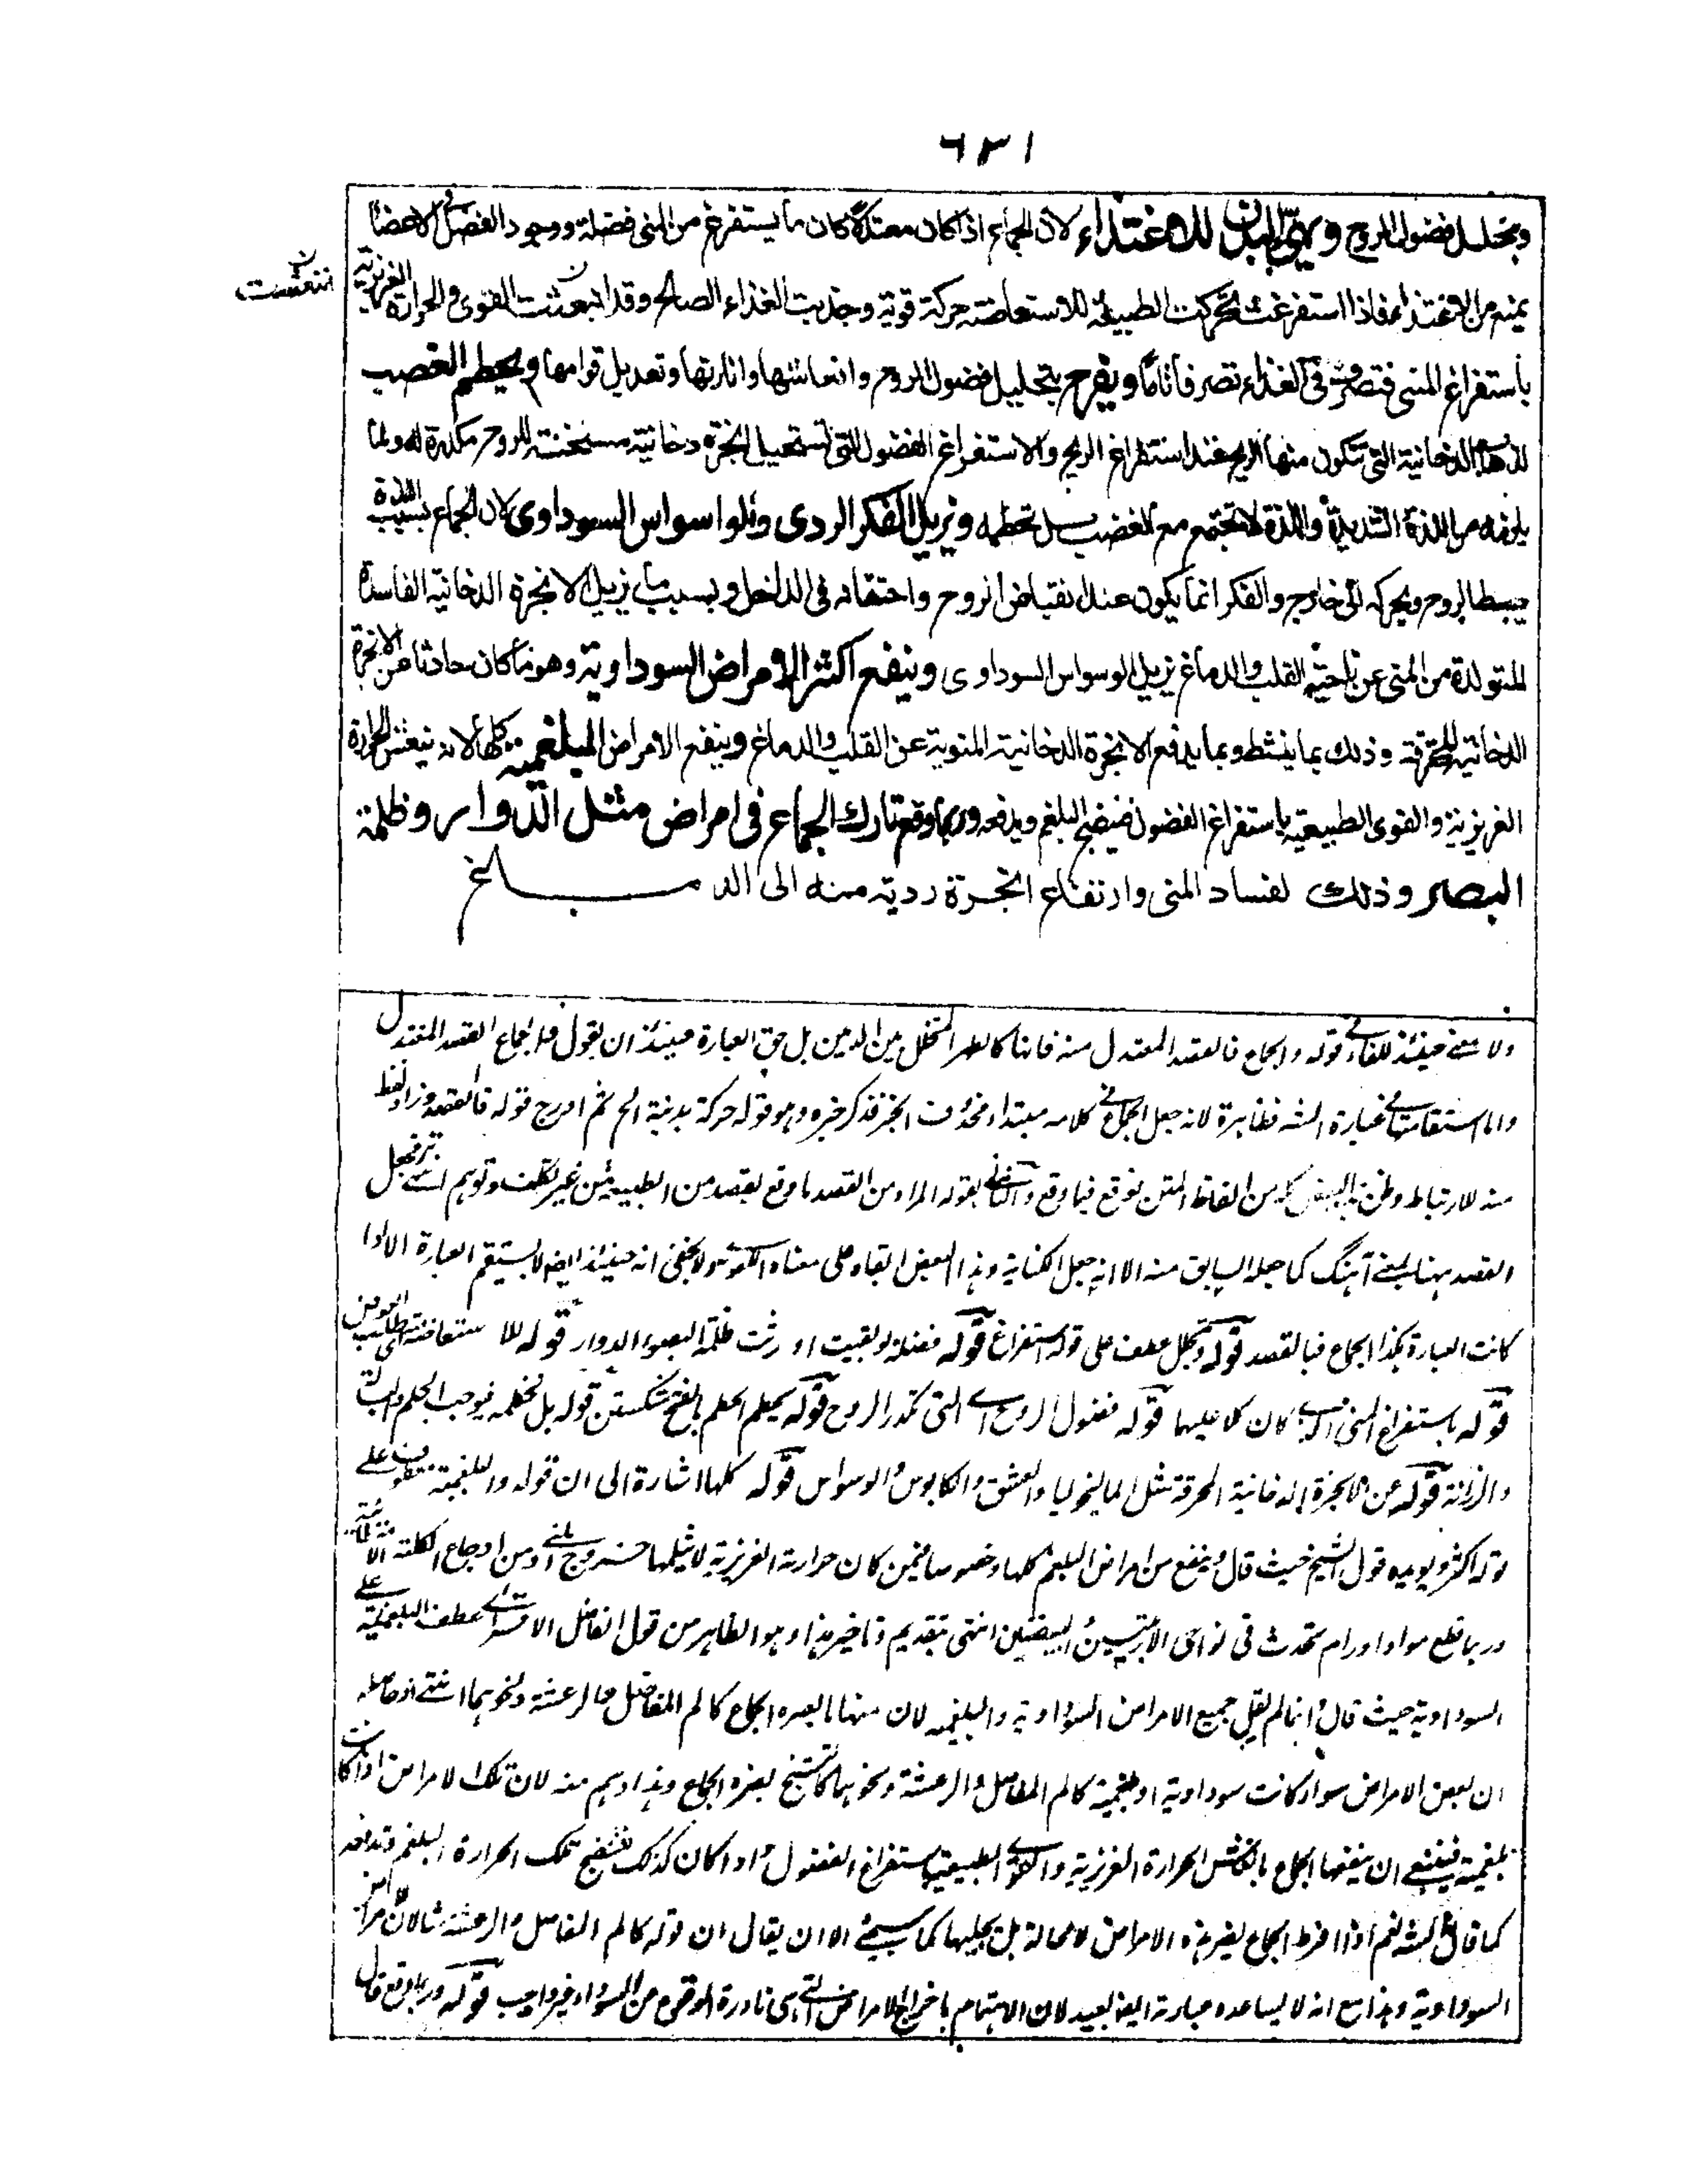 ٦٣١
وبتحلل فضول الروح ويهيئ البدن للاغتذاء لان الجماع اذا كان معتدلا كان ما يستفرغ من المنى فضلة ووجود الفضل فى الاعضاء
يمنع من الاغتذاء فاذا استفرغت تحركت الطبيعة للاستعاضة حركة قوية وجذبت الغذاء الصالح وقد انبعثت القوى والحرارة الغريزية
انتعشت
باستفراغ المنى فتصرفت فى الغذاء تصرفا تاما ويفرح بتحليل فضول الروح وانعاشها وانارتها وتعديل قوامها ويحطم الغضب
الدخانية التى تتكون منها الريح عند استفراغ الريح والاستفراغ الفضول التى تستحيل ابخرة دخانية مسخنة للروح مكدرة له ولما
يلزمه من اللذة الشديدة واللذة لا تجتمع مع الغضب بل تحطمه ويزيل الفكر الردى والوسواس السوداوى لان الجماع بسبب اللذة
يبسط الروح ويحركه الى خارج والفكر انما يكون عند انقباض الروح واحتقانه فى الداخل وبسبب ما يزيل الابخرة الدخانية الفاسدة
المتولدة من المنى عن ناحية القلب والدماغ يزيل الوسواس السوداوى وينفع اكثر الامراض السوداوية وهو ما كان حادثا عن الابخرة
الدخانية المحترقة وذلك بما ينشط وبما يدفع الابخرة الدخانية المنوية عن القلب والدماغ وينفع الامراض البلغمية كلها لانه ينعش الحرارة
الغريزية والقوى الطبيعية باستفراغ الفضول فينضج البلغم ويدفعه وربما وقع تارك الجماع فى امراض مثل الدوار وظلمة
البصر وذلك لفساد المنى وارتفاع ابخرة ردية منه الى الدماغ
ولا معنى حينئذ للفاء فى قوله والجماع فالقصد المعتدل منه فانها كالطهر المتخلل بين الدمين بل حق العبارة حينئذ ان يقول فالجماع القصد المعتدل
واما استقامتها فى عبارة الشه فظاهرة لانه جعل الجماع فى كلامه مبتداء محذوف الخبر فذكر خبره وهو قوله حركة بدنية الخ ثم ادرج قوله فالقصد وزاد لفظ
منه للارتباط وظن البعض من الفاظ المتن فوقع فيما وقع بقوله المراد من القصد ما وقع بقصد من الطبيعة من غير تكلف وتوهم فجعل
القصد ههنا بمعنى آهنگ كما جعله السابق منه الا انه جعل الكناية وهذا البعض ابقاه على معناه اللغوى ولا يخفى انه حينئذ ايضا لا يستقيم العبارة الا اذا
كانت العبارة هكذا الجماع فبالقصد قوله وتحلل عطف على قوله استفراغ قوله فضلة لو بقيت اورثت ظلمة البصر والدوار قوله للاستعاضة اى لطلب العوض
قوله باستفراغ المنى كان كلا عليها قوله فضول الروح اى التى تكدر الروح قوله يحطم الحطم بالفتح شكستن قوله بل تحطمه فيوجب الحلم
والرزانة قوله عن الابخرة الدخانية المحرقة مثل الماليخوليا والعشق والكابوس والوسواس قوله كلها اشارة الى ان قوله والبلغمية معطوف على
قوله اكثر ويويده قول الشيخ حيث قال وينفع من امراض البلغم كلها وخصوصا فيمن كان حرارته الغريزية لا يثلمها خروج المنى ومن اوجاع الكلية الامتلائية
وربما قطع مواد اورام تحدث فى نواحى الاربيتين والبيضتين انتهى بتقديم وتاخير هذا وهو الظاهر من قول الفاضل عطف البلغمية على
السوداوية حيث قال وانما لم يقل جميع الامراض السوداوية والبلغمية لان منها ما يضره الجماع كالم المفاصل والرعشة ونحوهما انتهى وحاصله
ان بعض الامراض سواء كانت سوداوية او بلغمية كالم المفاصل والرعشة ونحوهما كالتشنج يضره الجماع وهذا وهم منه لان تلك الامراض اذا كانت
بلغمية فينبغى ان ينفعها الجماع بانعاش الحرارة الغريزية والقوى الطبيعية باستفراغ الفضول واذا كان كذلك فتنضج تلك الحرارة البلغم وتدفعه
كما قال الشه نعم اذا افرط الجماع يضر هذه الامراض لا محالة بل يجلبها كما سيجئ الا ان يقال ان قوله كالم المفاصل والرعشة مثالان للامراض
السوداوية وهذا مع انه لا يساعده عبارته ايضا بعيد لان الاهتمام باخراج الامراض التى هى نادرة الوقوع من السوداء غير واجب قوله وربما وقع قال